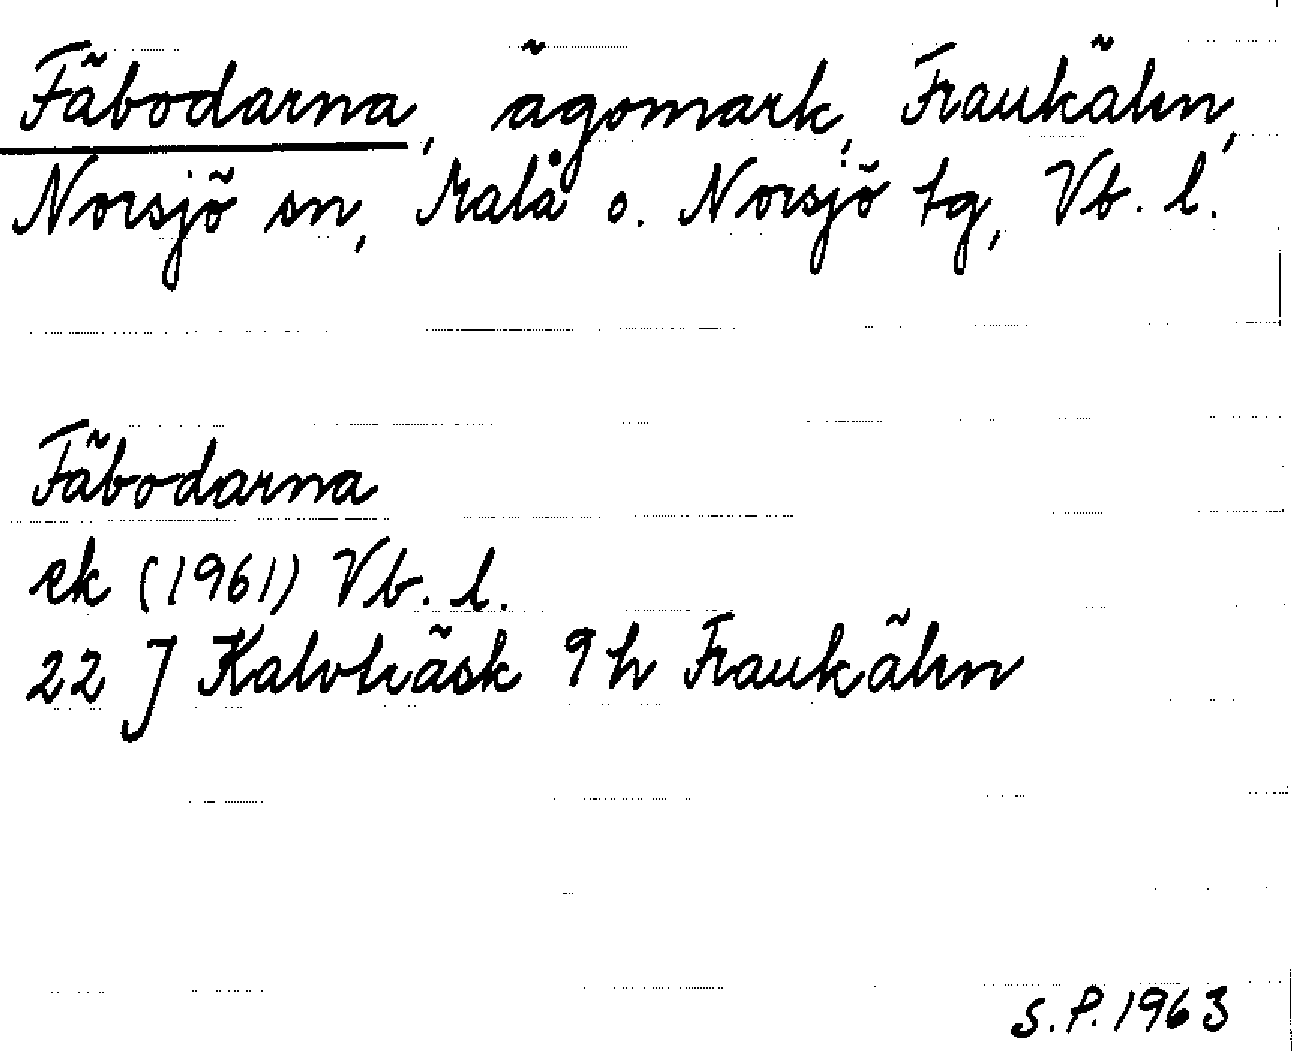 Fäbodarna, ägomark, Fraukälen,
Norsjö sn, Malå o. Norsjö tg, Vb. l.
Fäbodarna
ek (1961) Vb. l.
22 J Kalvträsk 9 h Fraukälen
S.P. 1963